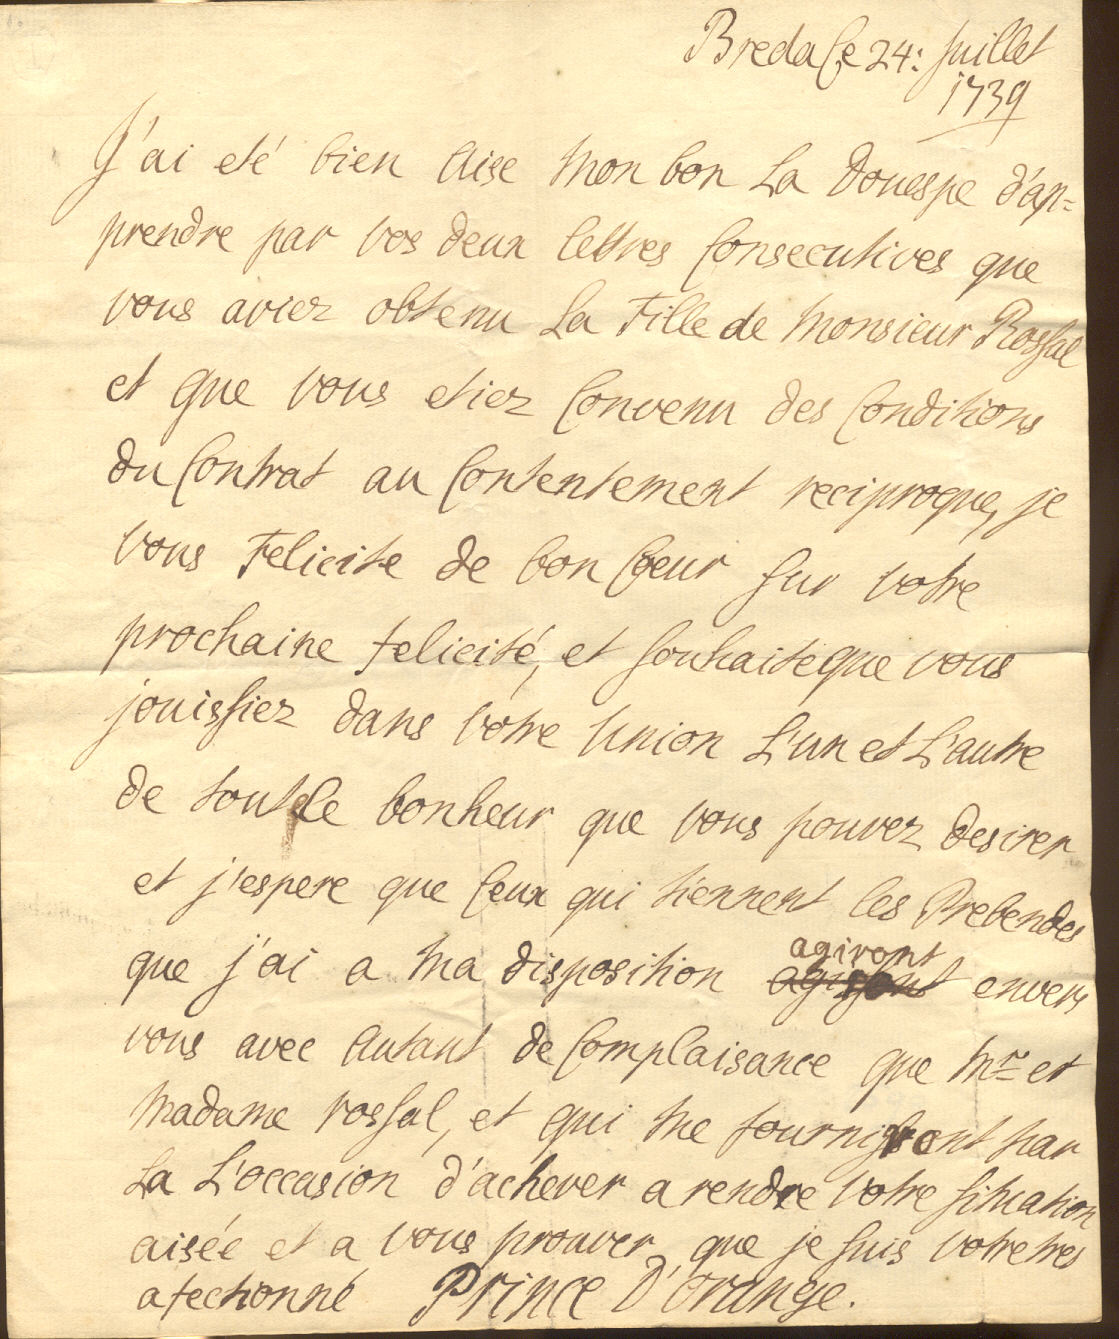 Breda Ce 24: Juillet
1739
J'ai eté bien Aise Mon bon La Douespe d'ap=
prendre par vos deux lettres Consecutives que
vous aviez obtenu La Fille de Monsieur Rossal
et que vous etiez Convenu des Conditions
du Contrat au Contentement reciproque, je
vous Felicite de bon Cœur sur votre
prochaine felicité, et souhaite que vous
jouissiez dans votre Union L'un et L'autre
de tout le bonheur que vous pouvez desirer
et j'espere que Ceux qui tiennent les Prebendes
que j'ai a Ma disposition agiront envers
vous avec Autant de Complaisance que Mr et
Madame rossal, et qui Me fourniront par
La L'occasion d'achever a rendre votre situation
aisée et a vous prouver que je suis votre tres
afectionné Prince D'orange.